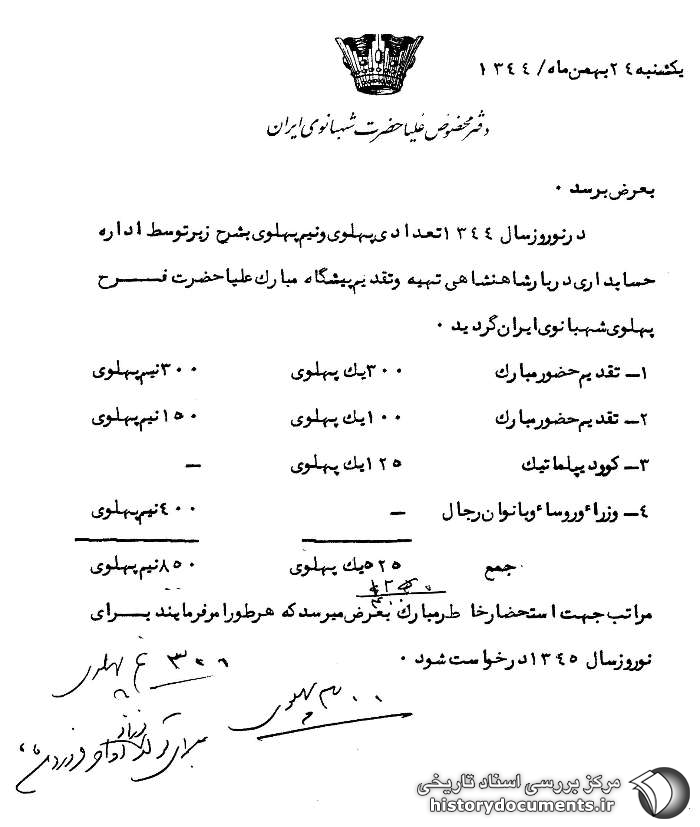 یکشنبه ۲٤ بهمن ماه / ۱۳٤٤
دفتر مخصوص علیا حضرت شهبانوی ایران
بعرض برسد ۰
در نوروز سال ۱۳٤٤ تعدادی پهلوی و نیم پهلوی بشرح زیر توسط اداره
حسابداری دربار شاهنشاهی تهیه و تقدیم پیشگاه مبارک علیا حضرت فرح
پهلوی شهبانوی ایران گردید ۰
۱ـ تقدیم حضور مبارک ۳۰۰ یک پهلوی ۳۰۰ نیم پهلوی
۲ـ تقدیم حضور مبارک ۱۰۰ یک پهلوی ۱۵۰ نیم پهلوی
۳ـ کوردیپلماتیک ۱۲۵ یک پهلوی ـ
٤ـ وزراء و روساء و بانوان رجال ـ ٤۰۰ نیم پهلوی
جمع ۵۲۵ یک پهلوی ۸۵۰ نیم پهلوی
مراتب جهت استحضار خاطر مبارک بعرض میرسد که هر طور امر فرمایند برای
نوروز سال ۱۳٤۵ درخواست شود ۰
پهلوی
پهلوی
برای
مرکز بررسی اسناد تاریخی
historydocuments.ir